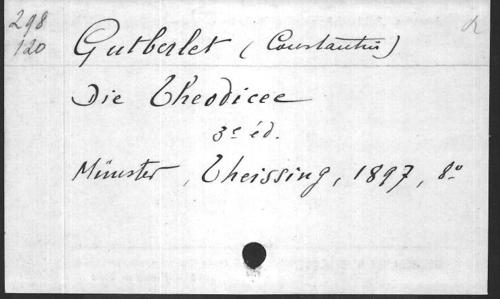 298
120
Gutberlet (Constantin)
Die Theodicee
3e éd.
Münster, Theissing, 1897, 8o